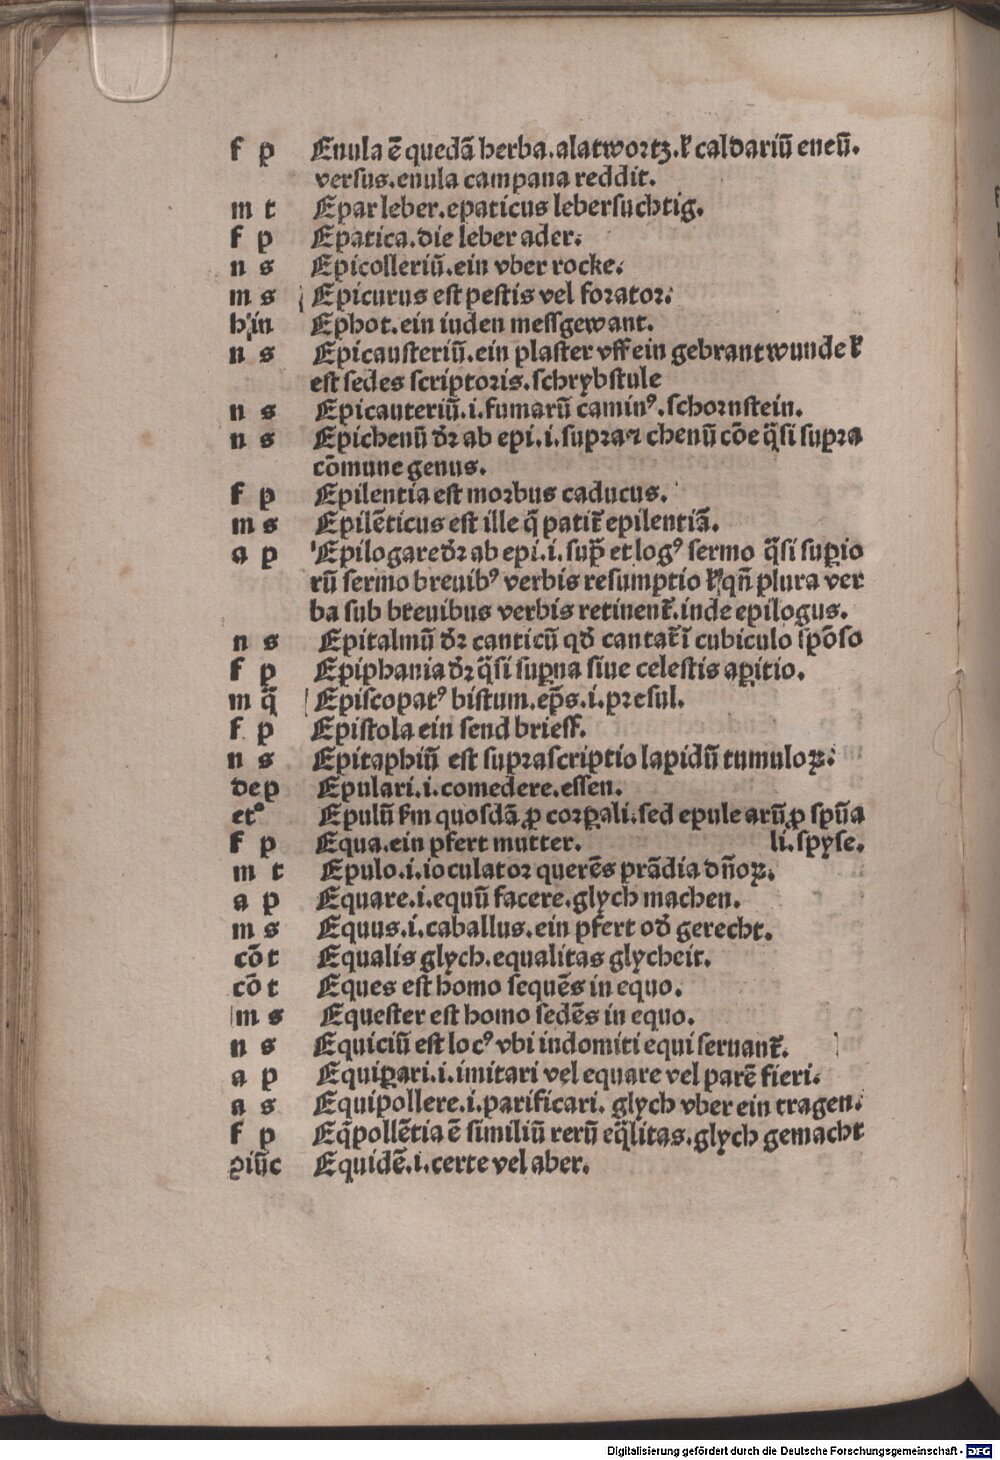 f p Enula ē quedā herba.alatwortz.ł caldariū eneū.
versus.enula campana reddit.
m t Epar leber.epaticus lebersuchtig.
f p Epatica.die leber ader.
n s Epicolleriū.ein vber rocke.
m s Epicurus est pestis vel forator.
h in Ephot.ein iuden messgewant.
n s Epicausteriū.ein plaster vff ein gebrant wunde ł
est sedes scriptoris.schrybstule
n s Epicauteriū.i.fumarū caminꝰ.schornstein.
n s Epichenū dr̄ ab epi.i.supra ⁊ chenū cōe q̄si supra
cōmune genus.
f p Epilentia est morbus caducus.
m s Epilēticus est ille q̄ patit̄ epilentiā.
a p Epilogare dr̄ ab epi.i.sup̄ et logꝰ sermo q̄si suꝑio
rū sermo breuibꝰ verbis resumptio ł qn̄ plura ver
ba sub breuibus verbis retinent̄.inde epilogus.
n s Epitalmū dr̄ canticū qd̄ cantat̄ ī cubiculo spōso
f p Epiphania dr̄ q̄si suꝑna siue celestis aꝑitio.
m q̄ Episcopatꝰ bistum.ep̄s.i.presul.
f p Epistola ein send brieff.
n s Epitaphiū est suprascriptio lapidū tumuloꝝ.
dep Epulari.i.comedere.essen.
et° Epulū fm quosdā ꝓ corꝑali.sed epule arū ꝓ spūa
f p Equa.ein pfert mutter. li.spyse.
m t Epulo.i.ioculator querēs prādia dn̄oꝝ.
a p Equare.i.equū facere.glych machen.
m s Equus.i.caballus.ein pfert od̄ gerecht.
cō t Equalis glych.equalitas glycheit.
cō t Eques est homo sequēs in equo.
m s Equester est homo sedēs in equo.
n s Equiciū est locꝰ vbi indomiti equi seruant̄.
a p Equiꝑari.i.imitari vel equare vel parē fieri.
a s Equipollere.i.parificari. glych vber ein tragen.
f p Eq̄pollētia ē similiū rerū eq̄litas.glych gemacht
ꝯiūc Equidē.i.certe vel aber.
Digitalisierung gefördert durch die Deutsche Forschungsgemeinschaft - DFG